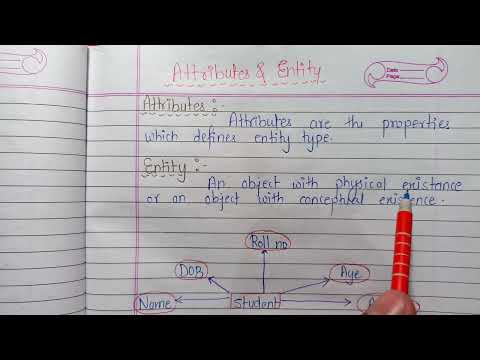 Attributes & Entity
Date
Page
Attributes :-
Attributes are the properties
which defines entity type.
Entity :-
An object with physical existance
or an object with conceptual existence.
Roll no
DOB
Age
Name
Student
A